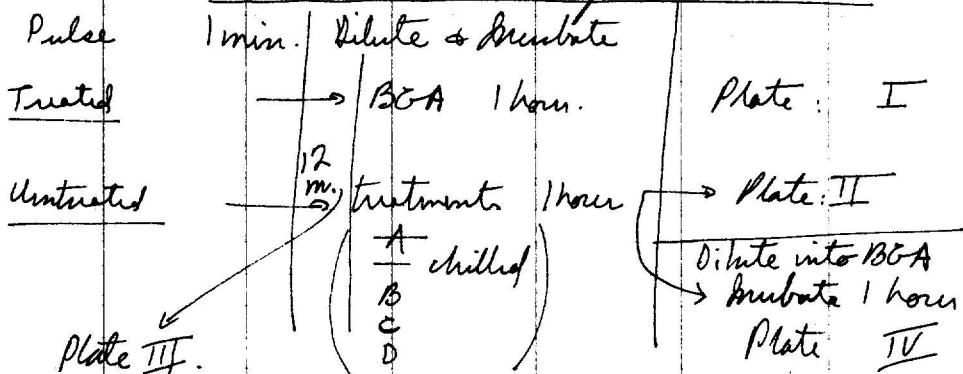 Pulse 1 min. Dilute & Incubate
Treated → BGA 1 hour. Plate: I
12 m.
Untreated → treatments 1 hour → Plate: II
A
— chilled
B
C
D
Dilute into BGA
→ Incubate 1 hour
Plate III. Plate IV